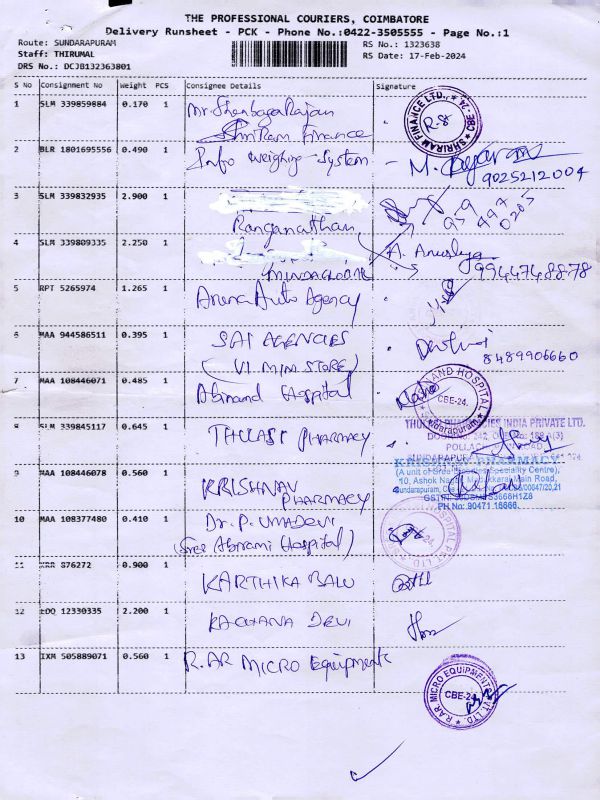 THE PROFESSIONAL COURIERS, COIMBATORE
Delivery Runsheet - PCK - Phone No.:0422-3505555 - Page No.:1
Route: SUNDARAPURAM
RS No.: 1323638
Staff: THIRUMAL
RS Date: 17-Feb-2024
DRS No.: DCJB132363801
S No Consignment No Weight PCS Consignee Details Signature
1 SLM 339859884 0.170 1 Mr. Shenbaga Rajan
Shriram Finance
SHRIRAM FINANCE LTD., CBE - 24.
2 BLR 1801695556 0.490 1 Info weighing System - M.
9025212004
3 SLM 339832935 2.900 1
Ranganathan
959 497 0205
4 SLM 339809335 2.250 1
A. Anusuya
9944748878
5 RPT 5265974 1.265 1 Arena Auto Agency
6 MAA 944586511 0.395 1 SAI AGENCIES
(VI MINI STORE)
8489906660
7 MAA 108446071 0.485 1 Abinand Hospital
ABINAND HOSPITAL CBE-24. Sundarapuram
8 SLM 339845117 0.645 1 THULASI PHARMACY
THULASI PHARMACIES INDIA PRIVATE LTD.
9 MAA 108446078 0.560 1 KRISHNAV
PHARMACY
KRISHNAV PHARMACY
Speciality Centre),
10, Ashok Main Road,
Sundarapuram,
PH No: 90471 16666.
10 MAA 108377480 0.410 1 Dr. P. UMADEVI
(Sree Abirami Hospital)
11 KRR 376272 0.900 1 KARTHIKA BALU
12 EDQ 12330335 2.200 1 KACHANA DEVI
13 IXM 505889071 0.560 1 R.AR MICRO Equipments
R.AR MICRO EQUIPMENTS PVT LTD. CBE-24